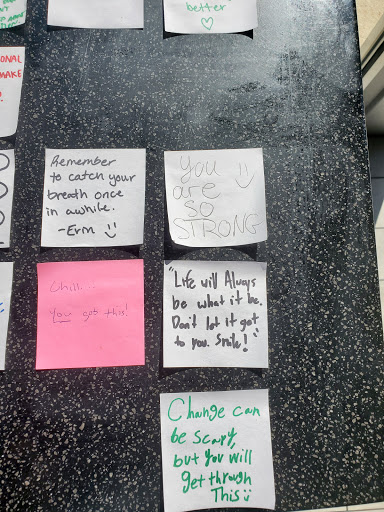 better
♡
ONAL
MAKE
Remember
to catch your
breath once
in awhile.
-Erm :)
You
are
SO
STRONG
:)
Chill...
You got this!
"Life will Always
be what it be.
Don't let it get
to you. Smile!"
Change can
be scary,
but you will
get through
This :)